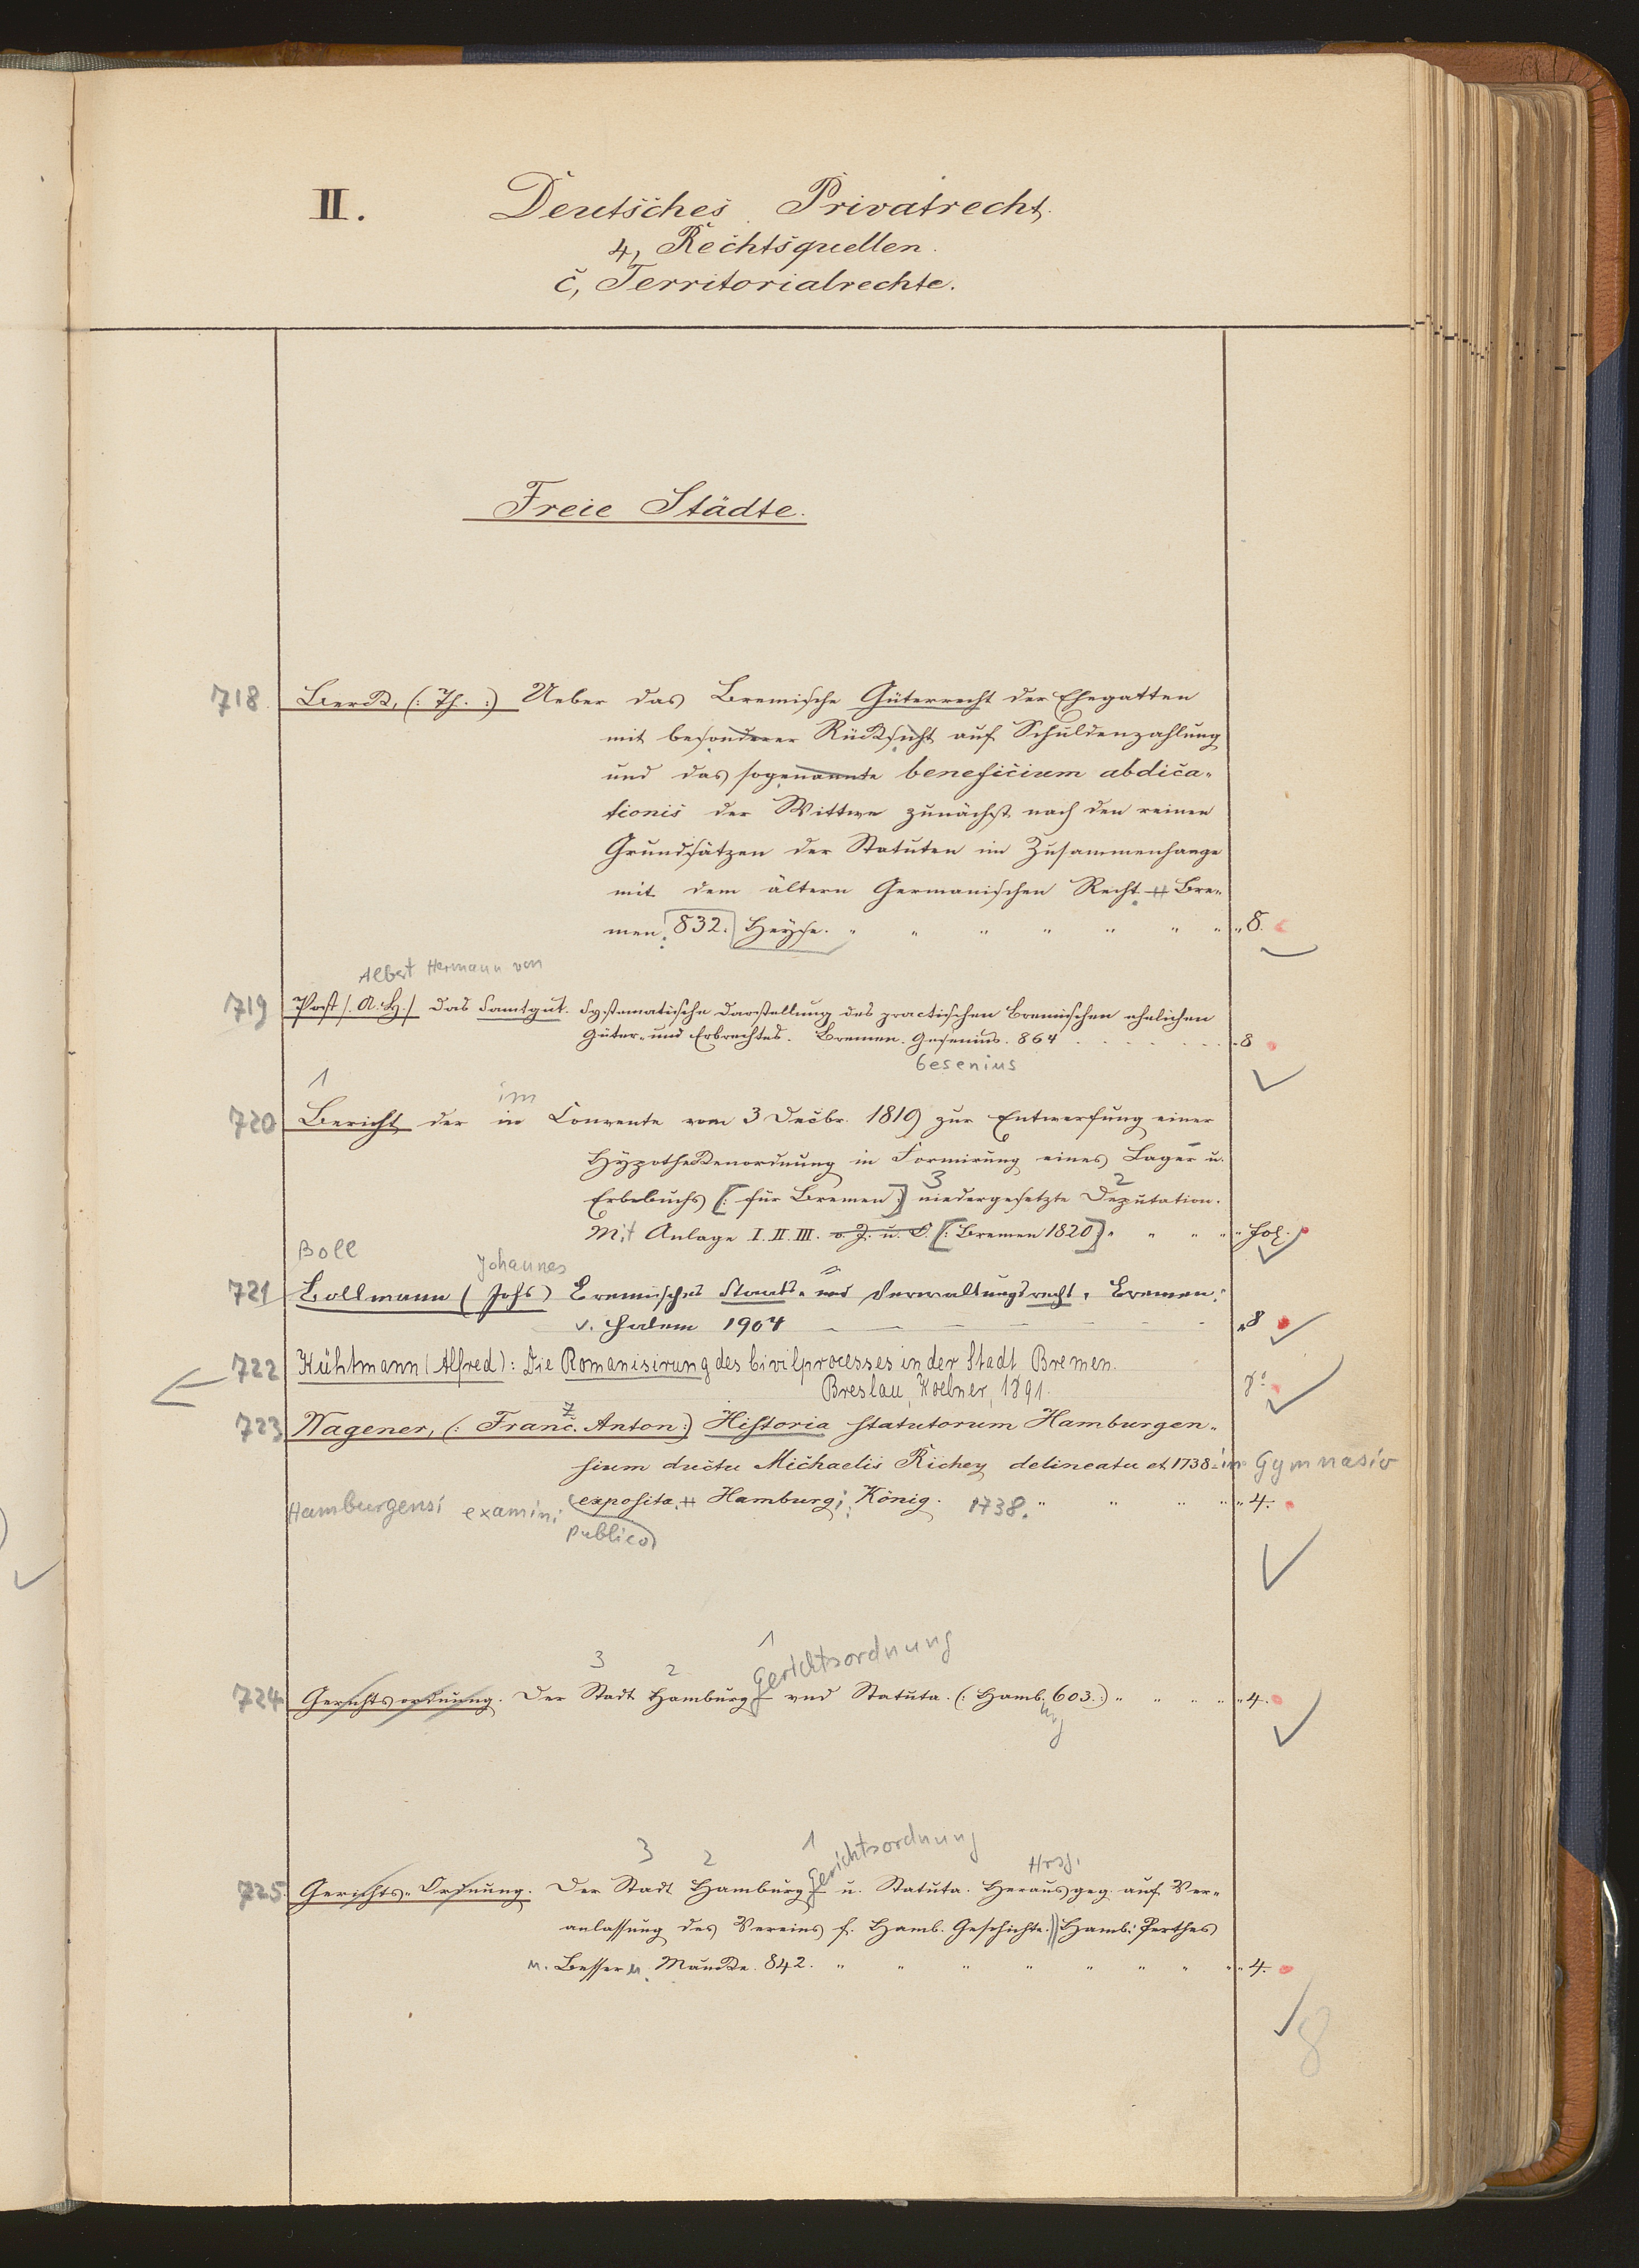 II. Deutsches Privatrecht.
4, Rechtsquellen.
c, Territorialrechte.
Freie Städte.
718. Berck, (: Th. :) Ueber das Bremische Güterrecht der Ehegatten
mit besonderer Rücksicht auf Schuldenzahlung
und das sogenannte beneficium abdica-
tionis der Wittwe zunächst nach den reinen
Grundsätzen der Statuten im Zusammenhange
mit dem ältern Germanischen Recht. Bre-
men. 832. Heyse. 8.
Albert Hermann von
719 Post /. A. H./ Das Samtgut. Systematische Darstellung des practischen Bremischen ehelichen
Güter- und Erbrechtes. Bremen. Gesenius. 864 8
Gesenius
1 im
720 Bericht der in Convente vom 3 Decbr. 1819 zur Entwerfung einer
Hypothekenordnung in Formirung eines Lager u.
3 2
Erbebuchs [: für Bremen :] niedergesetzte Deputation.
Mit Anlage I. II. III. o. J. u. O. [: Bremen 1820] fol.
Boll Johannes
721 Bollmann (Johs) Bremisches Staats- und Verwaltungsrecht. Bremen:
v. Halem 1904 8
722 Kühtmann (Alfred): Die Romanisirung des Civilprocesses in der Stadt Bremen.
Breslau, Koebner, 1891. 8°
723 Wagener, (: Franc. Anton:) Historia statutorum Hamburgen-
z
sium ductu Michaelis Richey delineatu et 1738 in Gymnasio
Hamburgensi examini exposita. Hamburg; König. 1738. 4.
publico
3 2 1 Gerichtsordnung
724 Gerichtsordnung. Der Stadt Hamburg vnd Statuta. (: Hamb. 603.:) 4.
urg
3 2 1 Gerichtsordnung Hrsg.
725. Gerichts-Ordnung. Der Stadt Hamburg u. Statuta. Herausgeg. auf Ver-
anlassung des Vereins f. Hamb. Geschichte. Hamb. Perthes
u. Besser u. Maucke. 842. 4.
8